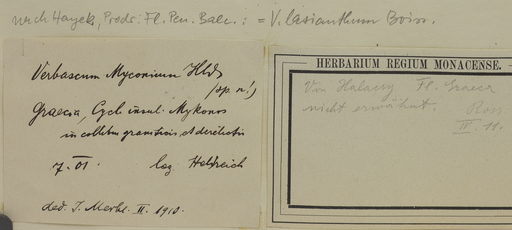 nach Hayek, Prodr. Fl. Pen. Balc.: = V. lasianthum Boiss.
Verbascum Myconium Hldr
(sp. n.!)
Graecia, Cycl. insul. Mykonos
in collibus graniticis, et derelictis
7. VI. 01. leg. Heldreich
ded. J. Merkl. II. 1910.
HERBARIUM REGIUM MONACENSE.
Von Halácsy Fl. Graeca
nicht erwähnt. Ross
II. 11.